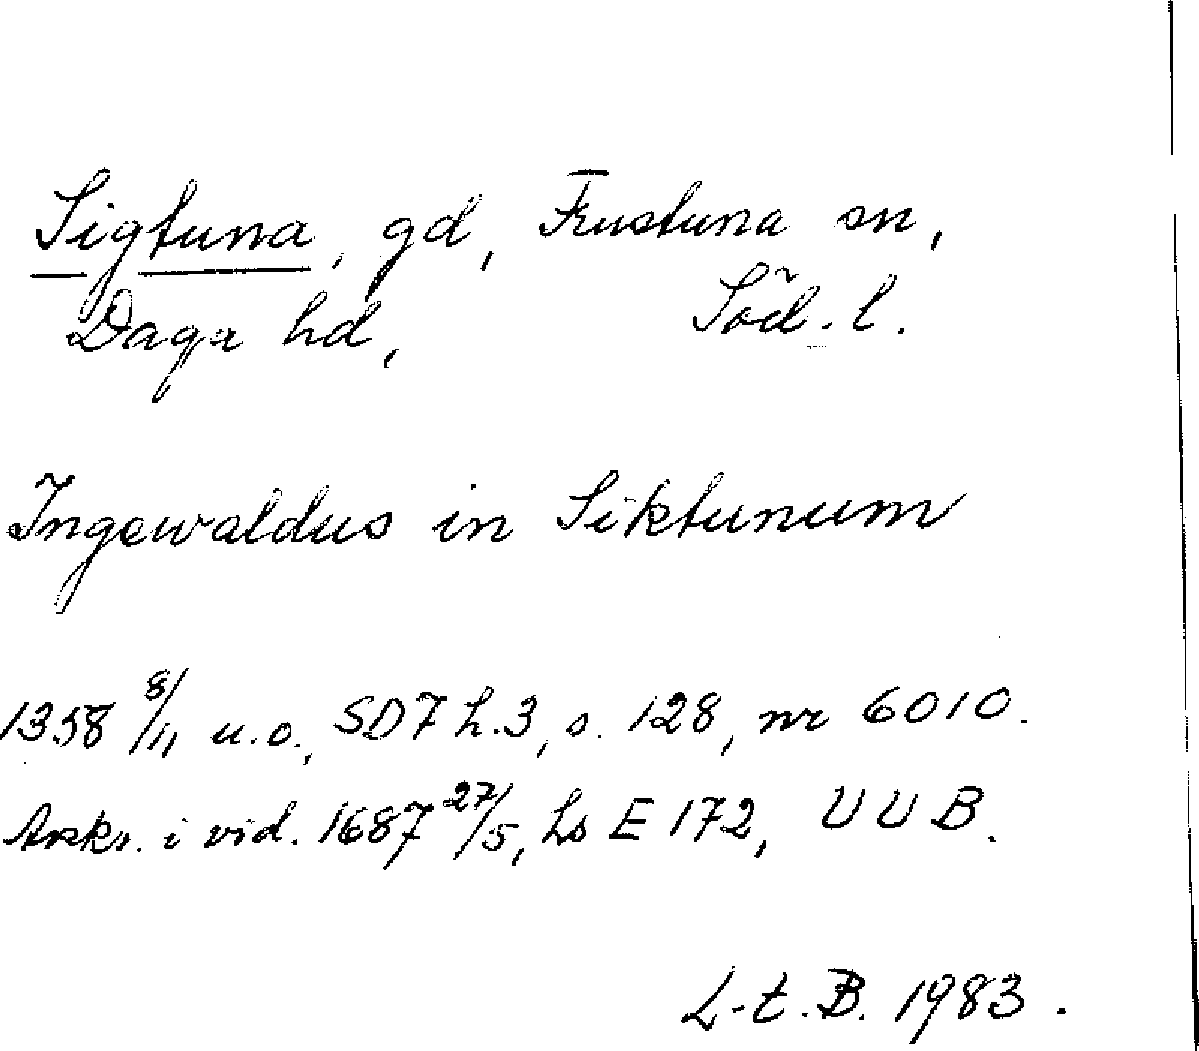 Sigtuna, gd, Frustuna sn,
Daga hd, Söd. l.
Ingewaldus in Siktunum
1358 8/11 u.o., SD7 h.3, s. 128, nr 6010.
Avskr. i vid. 1687 27/5, hs E 172, UUB.
L-t. B. 1983.